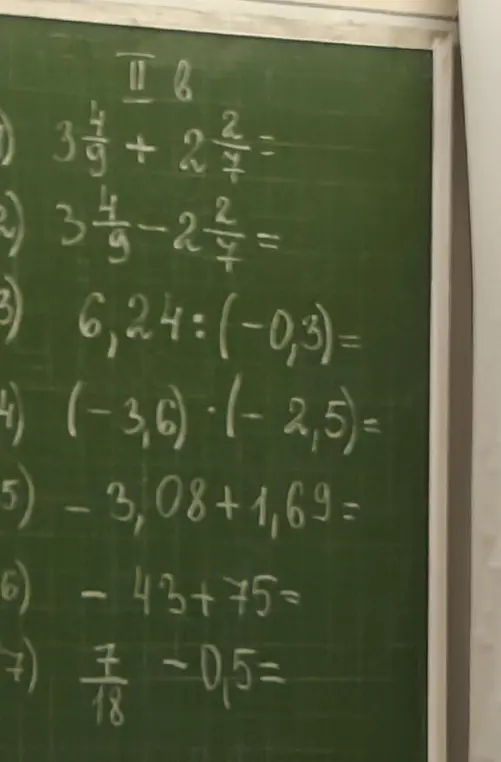 II в
1) 3 4/9 + 2 2/7 =
2) 3 4/9 - 2 2/7 =
3) 6,24 : (-0,3) =
4) (-3,6) · (-2,5) =
5) -3,08 + 1,69 =
6) -43 + 75 =
7) 7/18 - 0,5 =